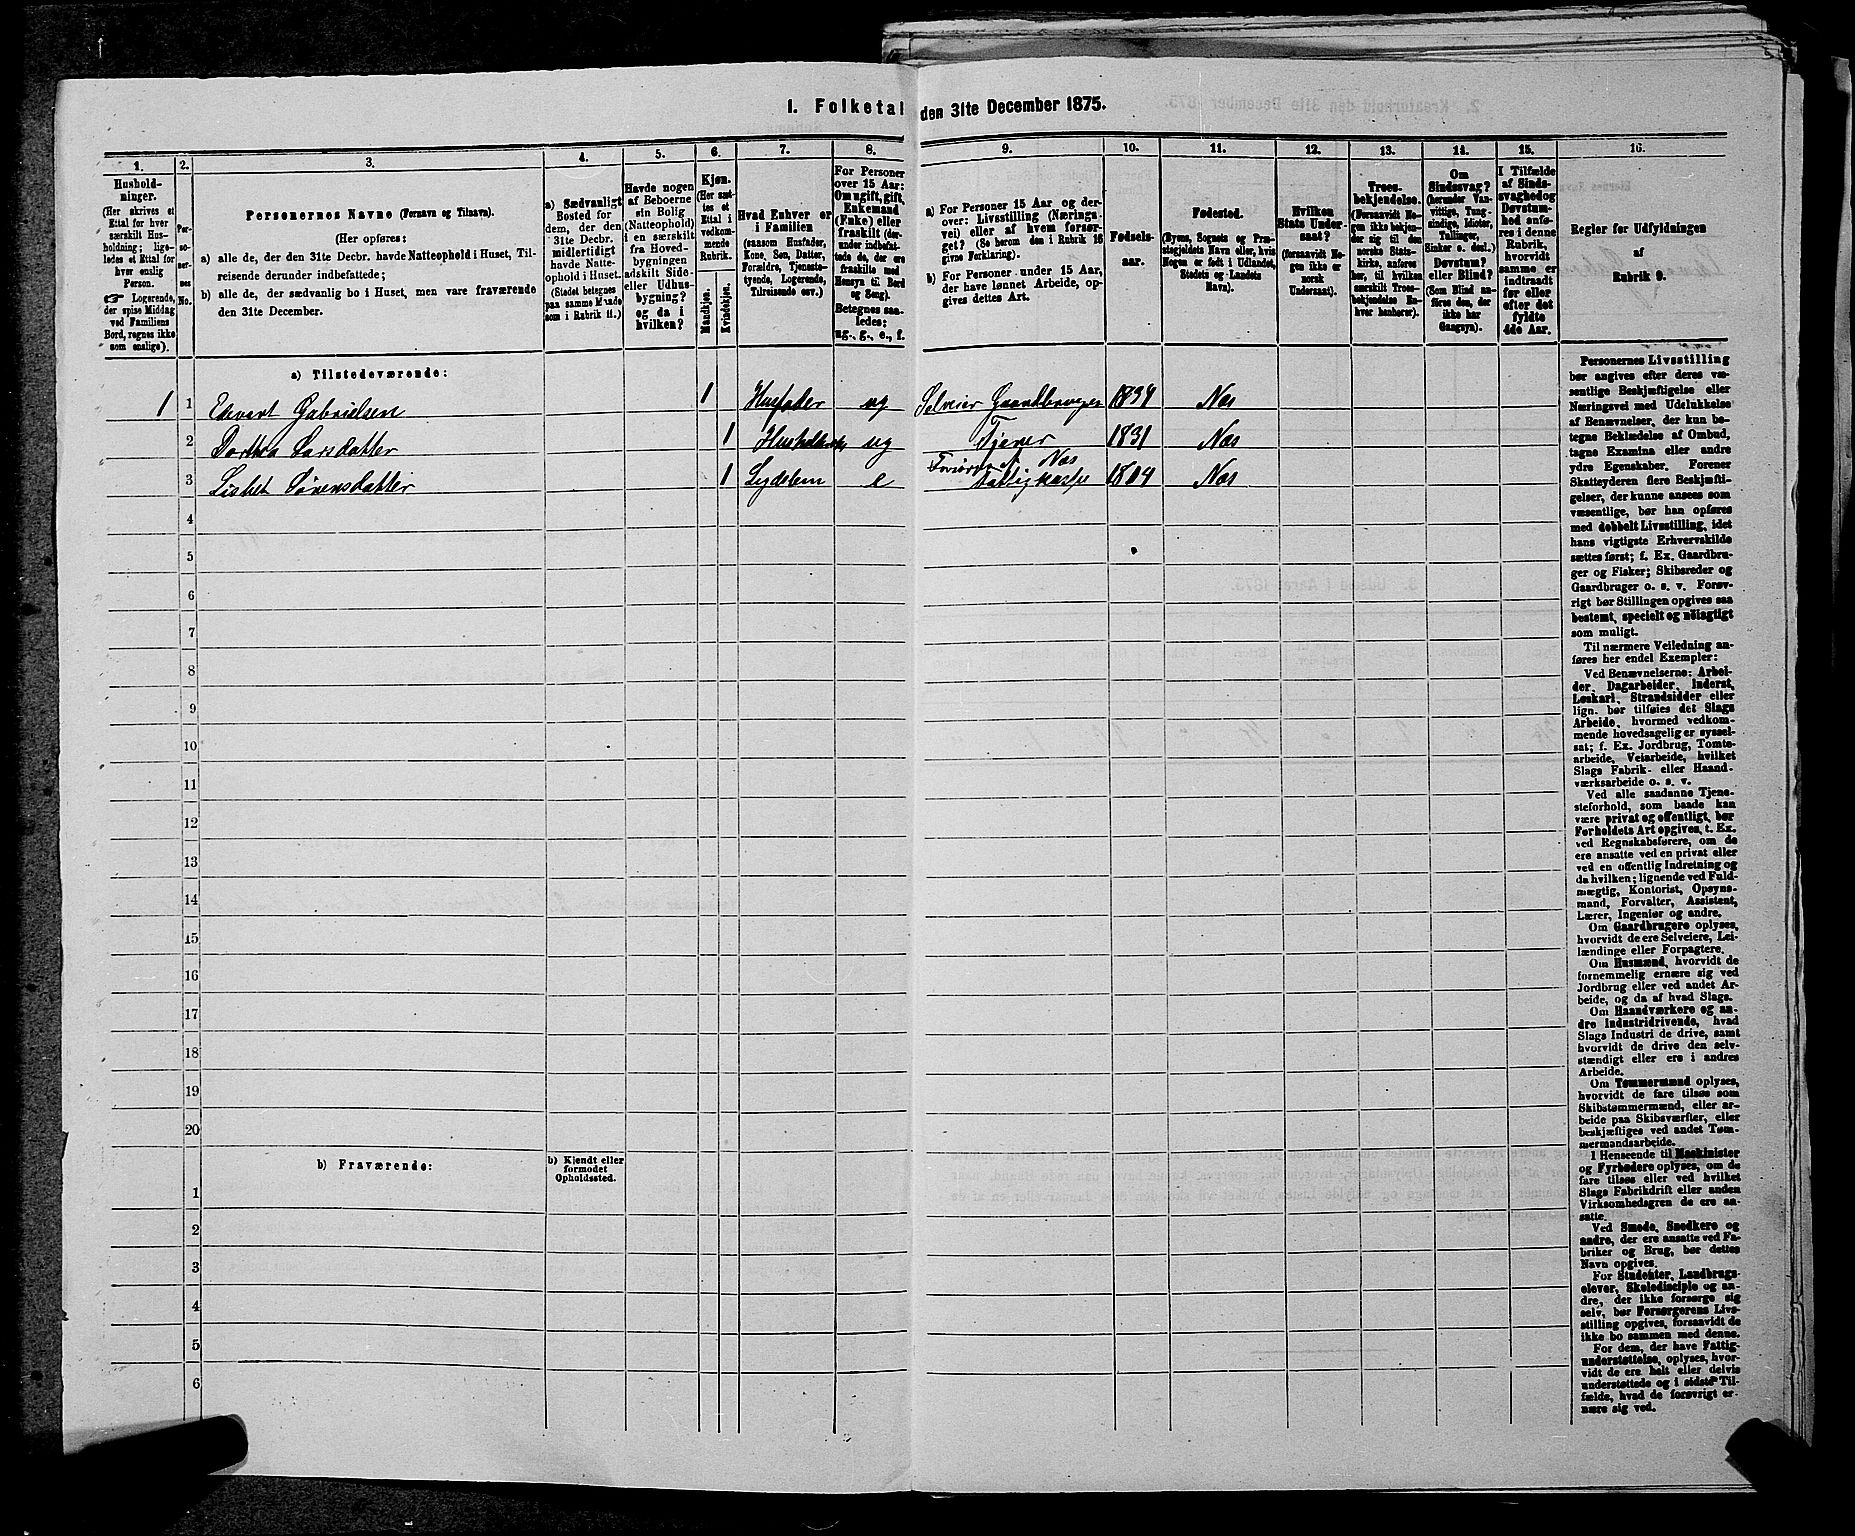 1. Folketal den 31te December 1875.
1.
2.
3.
4.
5.
6.
7.
8.
9.
10.
11.
12.
13.
14.
15.
16.
Hushold-
ninger.
(Her skrives et
Ettal for hver
særskilt Hus-
holdning; lige-
ledes et Ettal for
hver enslig
Person.
☞ Logerende,
der spise Middag
ved Familiens
Bord, regnes ikke
som enslige).
Per-
so-
ner-
nes
No.
Personernes Navne (Fornavn og Tilnavn).
(Her opføres:
a) alle de, der den 31te Decbr. havde Natteophold i Huset, Til-
reisende derunder indbefattede;
b) alle de, der sædvanlig bo i Huset, men vare fraværende
den 31te December.
a) Sædvanligt
Bosted for
dem, der den
31te Decbr.
midlertidigt
havde Natte-
ophold i Huset.
(Stedet betegnes
paa samme Maade
som i Rubrik 11.)
Havde nogen
af Beboerne
sin Bolig
(Natteophold)
i en særskilt
fra Hoved-
bygningen
adskilt Side-
eller Udhus-
bygning?
og da i
hvilken?
Kjøn.
(Her sæt-
tes et
Ettal i
vedkom-
mende
Rubrik.
Mandkjøn.
Kvindekjøn.
Hvad Enhver er
i Familien
(saasom Husfader,
Kone, Søn, Datter,
Forældre, Tjeneste-
tyende, Logerende,
Tilreisende osv.)
For Personer
over 15 Aar:
Om ugift, gift,
Enkemand
(Enke) eller
fraskilt (der-
under indbefat-
tede de, der ere
fraskilte med
Hensyn til Bord
og Seng).
Betegnes saa-
ledes:
ug., g., e., f.
a) For Personer 15 Aar og der-
over: Livsstilling (Nærings-
vei) eller af hvem forsør-
get? (Se herom den i Rubrik 16
givne Forklaring).
b) For Personer under 15 Aar,
der have lønnet Arbeide, op-
gives dettes Art.
Fødsels-
aar.
Fødested.
(Byens, Sognets og Præ-
stegjeldets Navn eller, hvis
Nogen er født i Udlandet,
Stedets og Landets
Navn).
Hvilken
Stats Under-
saat?
(forsaavidt No-
gen ikke er
norsk
Undersaat).
Troes-
bekjendelse.
(Forsaavidt No-
gen ikke bekjen-
der sig til den
norske Stats-
kirke, anføres
her, til hvilken
særskilt Troes-
bekjendelse En-
hver henhører).
Om
Sindssvag?
(herunder Van-
vittige, Tung-
sindige, Idioter,
Tullinger,
Sinker o. desl.)
Døvstum?
eller Blind?
(Som Blind an-
føres den, der
ikke har
Gangsyn).
I Tilfælde
af Sinds-
svaghed og
Døvstum-
hed anfø-
res i denne
Rubrik,
hvorvidt
samme er
indtraadt
før eller
efter det
fyldte
4de Aar.
Regler for Udfyldningen
af
Rubrik 9.
a) Tilstedeværende:
1 1 Edvart Gabrielsen 1 Husfader ug Selveier Gaardbruger 1834 Næs
2 Dorthea Larsdatter 1 ug Tjener 1831 Næs
3 Lisbet Sørensdatter 1 Lægdslem e Næs Fattigkasse 1804 Næs
4
5
6
7
8
9
10
11
12
13
14
15
16
17
18
19
20
b) Fraværende:
b) Kjendt eller
formodet
Opholdssted.
1
2
3
4
5
6
Personernes Livsstilling
bør angives efter deres væ-
sentlige Beskjæftigelse eller
Næringsvei med Udelukkelse
af Benævnelser, der kun be-
tegne Beklædelse af Ombud,
tagne Examina eller andre
ydre Egenskaber. Forener
Skatteyderen flere Beskjæfti-
gelser, der kunne ansees som
væsentlige, bør han opføres
med dobbelt Livsstilling, idet
hans vigtigste Erhvervskilde
sættes først; f. Ex. Gaardbru-
ger og Fisker; Skibsreder og
Gaardbruger o. s. v. Forøv-
rigt bør Stillingen opgives saa
bestemt, specielt og nøiagtigt
som muligt.
Til nærmere Veiledning an-
føres her endel Exempler:
Ved Benævnelserne: Arbei-
der, Dagarbeider, Inderst,
Løskarl, Strandsidder eller
lign. bør tilføies det Slags
Arbeide, hvormed vedkom-
mende hovedsagelig er syssel-
sat; f. Ex. Jordbrug, Tomte-
arbeide, Veiarbeide, hvilket
Slags Fabrik- eller Haand-
værksarbeide o. s. v.
Ved alle saadanne Tjene-
steforhold, som baade kan
være privat og offentligt, bør
Forholdets Art opgives, t. Ex.
ved Regnskabsførere, om de
ere ansatte ved en privat eller
ved en offentlig Indretning og
da hvilken; lignende ved Fuld-
mægtig, Kontorist, Opsyns-
mand, Forvalter, Assistent,
Lærer, Ingeniør og andre.
Om Gaardbrugere oplyses,
hvorvidt de ere Selveiere, Lei-
lændinge eller Forpagtere.
Om Husmænd, hvorvidt de
fornemmelig ernære sig ved
Jordbrug eller ved andet Ar-
beide, og da af hvad Slags.
Om Haandværkere og an-
dre Industridrivende, hvad
Slags Industri de drive, samt
hvorvidt de drive den selv-
stændigt eller ere i andres
Arbeide.
Om Tømmermænd oplyses,
hvorvidt de fare tilsøs som
Skibstømmermænd, eller ar-
beide paa Skibsværfter, eller
beskjæftiges ved andet Tøm-
mermandsarbeide.
I Henseende til Maskinister
og Fyrbødere oplyses, om de
fare tilsøs eller ved hvilket
Slags Fabrikdrift eller anden
Virksomhedsgren de ere an-
satte.
Ved Smede, Snedkere og
andre, der ere ansatte ved Fa-
briker og Brug, bør dettes
Navn opgives.
For Studenter, Landbrugs-
elever, Skoledisciple og an-
dre, der ikke forsørge sig
selv, bør Forsørgerens Livs-
stilling opgives, forsaavidt de
ikke bo sammen med denne.
For dem, der have Fattig-
understøttelse, oplyses, hvor-
vidt de ere helt eller delvis
understøttede og i sidste Til-
fælde, hvad de forøvrigt er-
nære sig ved.